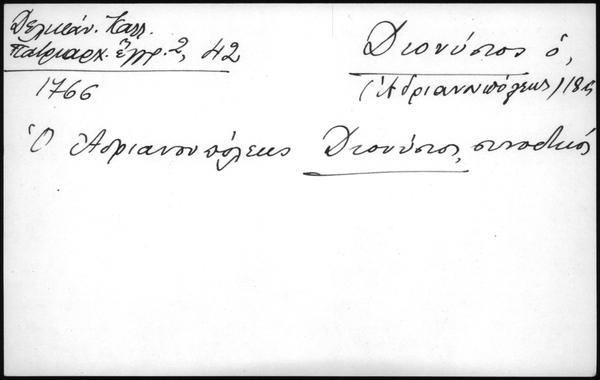 Δελικάν. Καλλ.
Πατριαρχ. ἔγγρ. 2, 42
1766
Διονύσιος ὁ,
(Ἀδριανουπόλεως) 18ς
Ὁ Ἀδριανουπόλεως Διονύσιος, συνοδικός